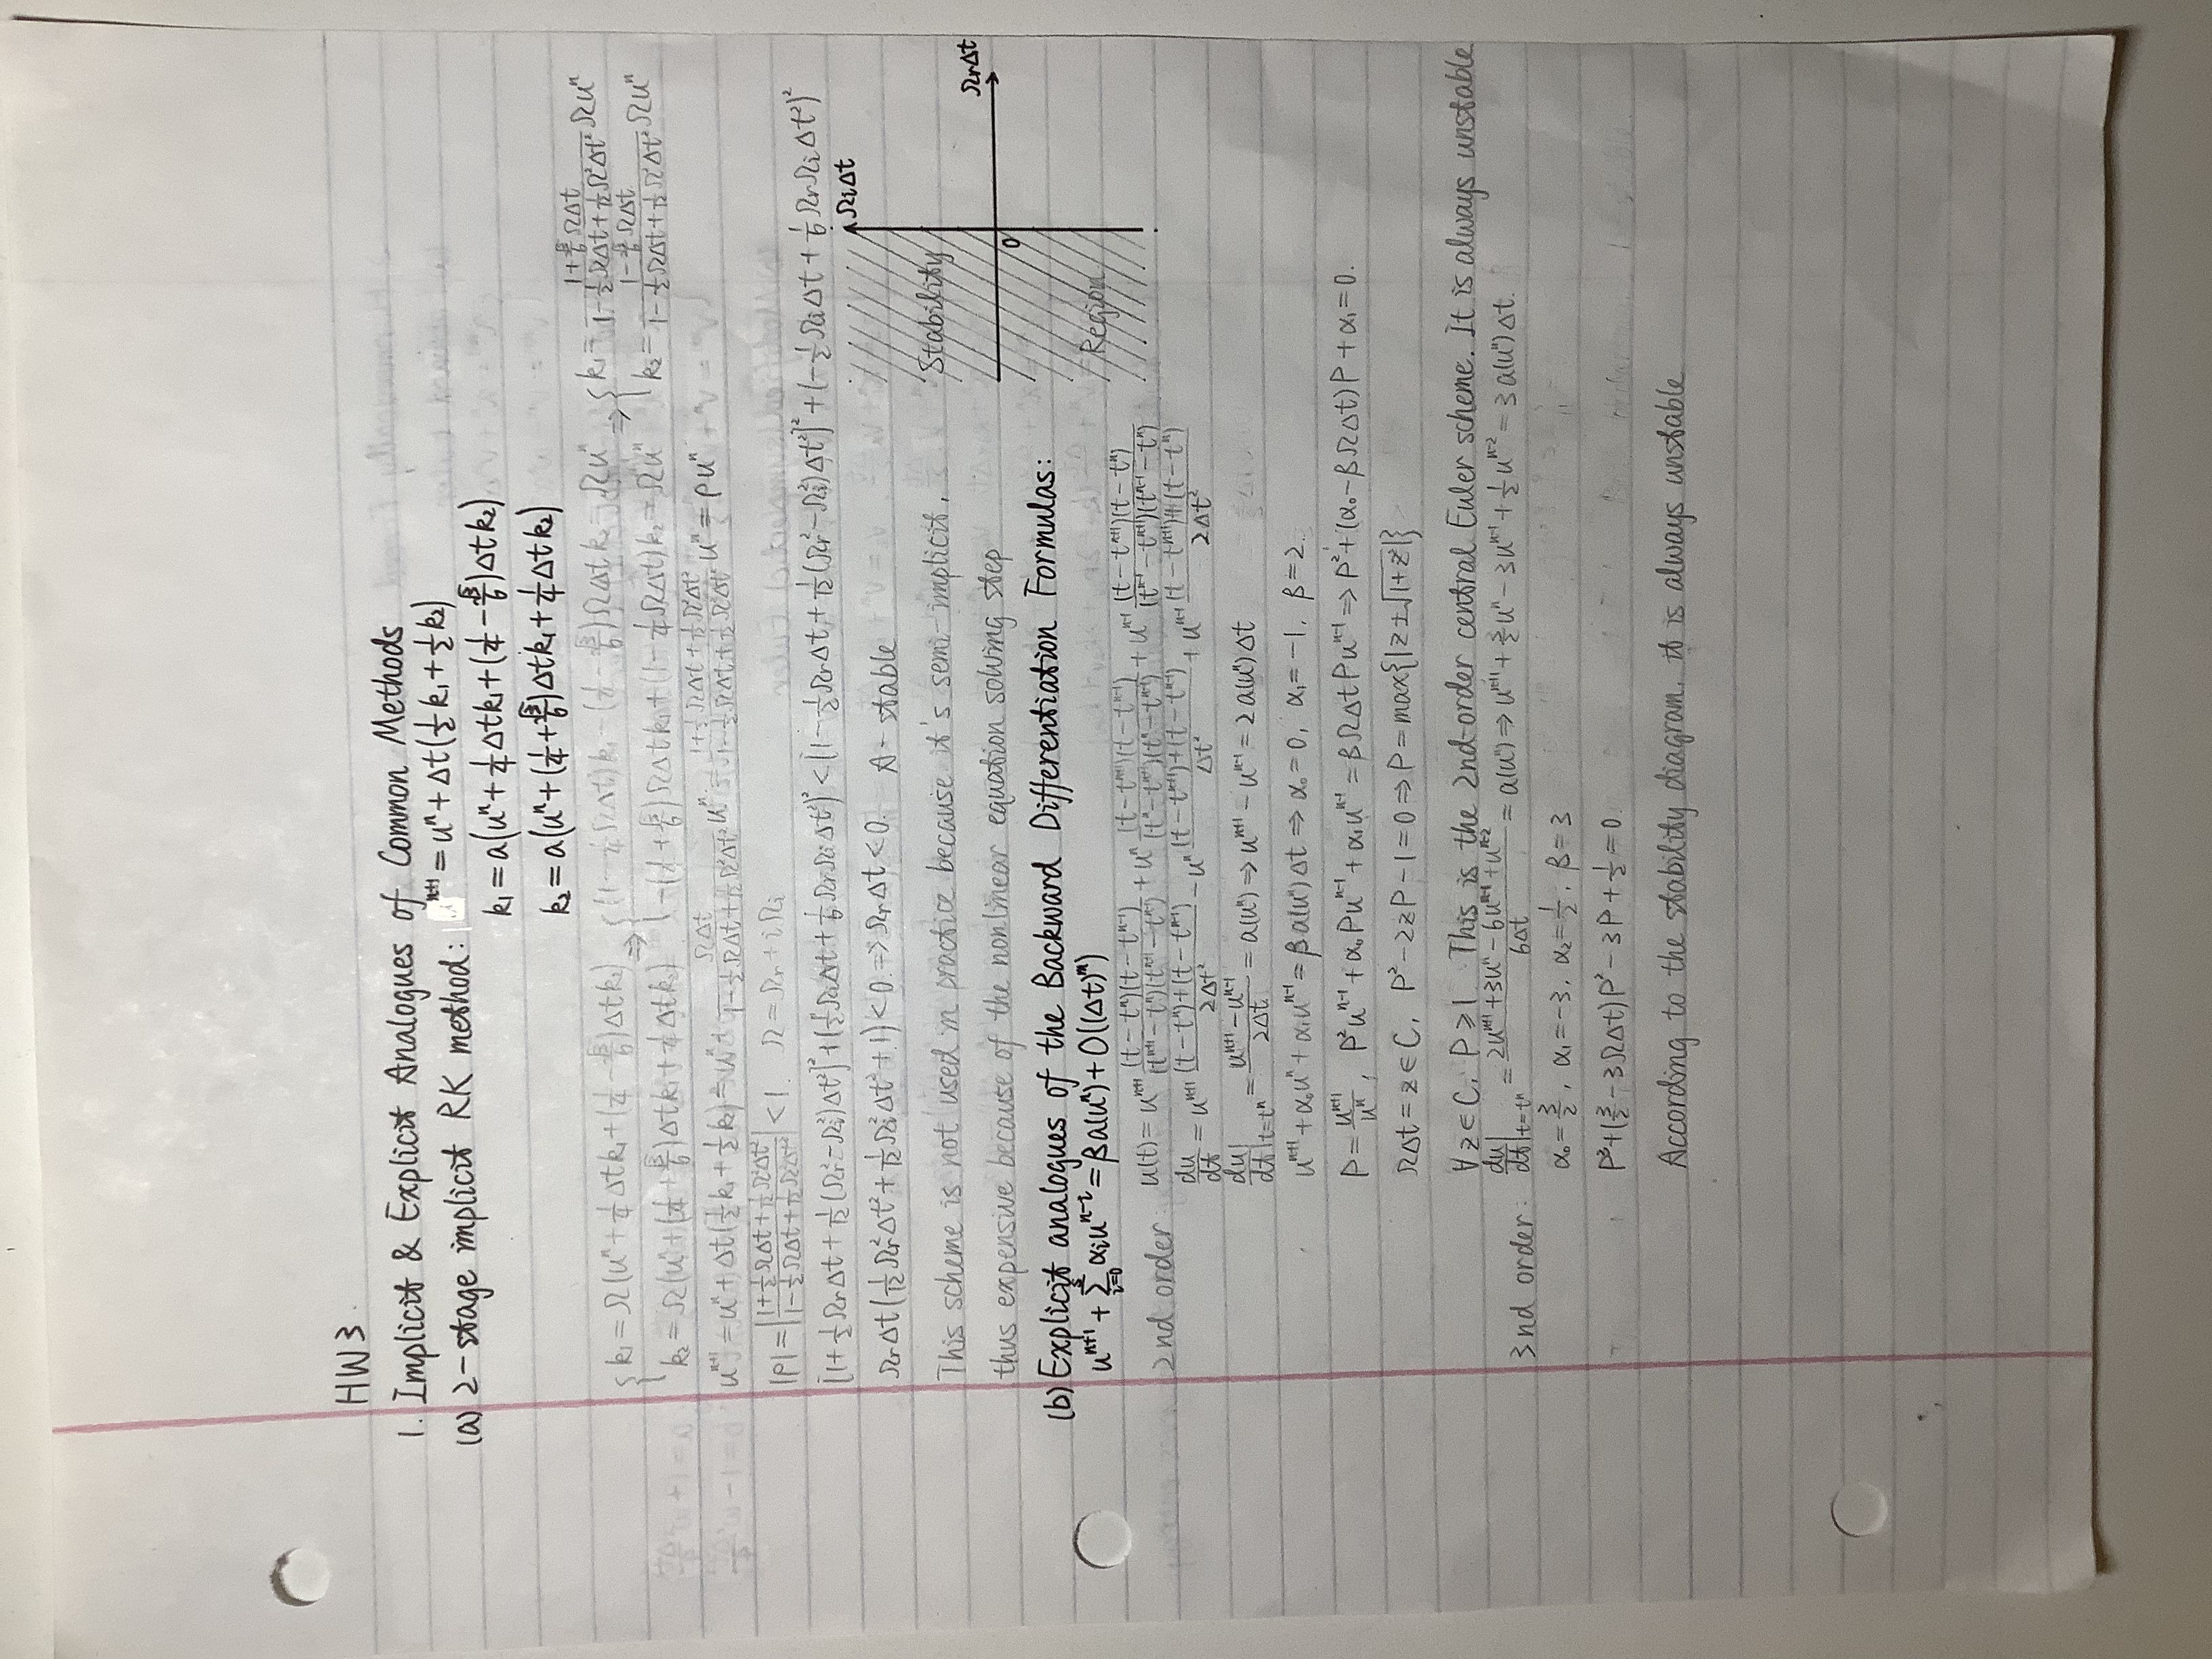 HW3.
1. Implicit & Explicit Analogues of Common Methods
(a) 2-stage implicit RK method: u^{n+1} = u^n + Δt(½k₁ + ½k₂)
k₁ = a(u^n + ¼Δtk₁ + (¼ - √3/6)Δtk₂)
k₂ = a(u^n + (¼ + √3/6)Δtk₁ + ¼Δtk₂)
{ k₁ = Ω(u^n + ¼Δtk₁ + (¼ - √3/6)Δtk₂) ⇒ { (1 - ¼ΩΔt)k₁ - (¼ - √3/6)ΩΔtk₂ = Ωu^n ⇒ { k₁ = (1 + √3/6 ΩΔt)/(1 - ½ΩΔt + 1/12 Ω²Δt²) Ωu^n
k₂ = Ω(u^n + (¼ + √3/6)Δtk₁ + ¼Δtk₂) -(¼ + √3/6)ΩΔtk₁ + (1 - ¼ΩΔt)k₂ = Ωu^n k₂ = (1 - √3/6 ΩΔt)/(1 - ½ΩΔt + 1/12 Ω²Δt²) Ωu^n
u^{n+1} = u^n + Δt(½k₁ + ½k₂) = u^n + ΩΔt/(1 - ½ΩΔt + 1/12 Ω²Δt²) u^n = (1 + ½ΩΔt + 1/12 Ω²Δt²)/(1 - ½ΩΔt + 1/12 Ω²Δt²) u^n = ρu^n
|ρ| = |(1 + ½ΩΔt + 1/12 Ω²Δt²)/(1 - ½ΩΔt + 1/12 Ω²Δt²)| < 1. Ω = Ωr + iΩi
[1 + ½ΩrΔt + 1/12(Ωr² - Ωi²)Δt²]² + (½ΩiΔt + 1/6 ΩrΩiΔt²)² < [1 - ½ΩrΔt + 1/12(Ωr² - Ωi²)Δt²]² + (-½ΩiΔt + 1/6 ΩrΩiΔt²)²
ΩrΔt(1/12 Ωr²Δt² + 1/12 Ωi²Δt² + 1) < 0. ⇒ ΩrΔt < 0. A-stable
ΩiΔt
Stability
ΩrΔt
0
Region
This scheme is not used in practice because it's semi-implicit,
thus expensive because of the nonlinear equation solving step
(b) Explicit analogues of the Backward Differentiation Formulas:
u^{n+1} + Σ_{i=0}^{s} αᵢu^{n-i} = βa(u^n) + O((Δt)^m)
2nd order: u(t) = u^{n+1} (t-t^n)(t-t^{n-1})/((t^{n+1}-t^n)(t^{n+1}-t^{n-1})) + u^n (t-t^{n+1})(t-t^{n-1})/((t^n-t^{n+1})(t^n-t^{n-1})) + u^{n-1} (t-t^{n+1})(t-t^n)/((t^{n-1}-t^{n+1})(t^{n-1}-t^n))
du/dt = u^{n+1} ((t-t^n)+(t-t^{n-1}))/(2Δt²) - u^n ((t-t^{n+1})+(t-t^{n-1}))/Δt² + u^{n-1} ((t-t^{n+1})+(t-t^n))/(2Δt²)
du/dt|_{t=t^n} = (u^{n+1} - u^{n-1})/(2Δt) = a(u^n) ⇒ u^{n+1} - u^{n-1} = 2a(u^n)Δt
u^{n+1} + α₀u^n + α₁u^{n-1} = βa(u^n)Δt ⇒ α₀ = 0, α₁ = -1, β = 2.
P = u^{n+1}/u^n, P²u^{n-1} + α₀Pu^{n-1} + α₁u^{n-1} = βΩΔtPu^{n-1} ⇒ P² + (α₀ - βΩΔt)P + α₁ = 0.
ΩΔt = z ∈ C, P² - 2zP - 1 = 0 ⇒ P = max{|z ± √(1+z²)|}
∀z ∈ C, P ≥ 1. This is the 2nd-order central Euler scheme. It is always unstable
3nd order: du/dt|_{t=t^n} = (2u^{n+1} + 3u^n - 6u^{n-1} + u^{n-2})/(6Δt) = a(u^n) ⇒ u^{n+1} + 3/2 u^n - 3u^{n-1} + ½u^{n-2} = 3a(u^n)Δt.
α₀ = 3/2, α₁ = -3, α₂ = ½, β = 3
P³ + (3/2 - 3ΩΔt)P² - 3P + ½ = 0.
According to the stability diagram, it is always unstable